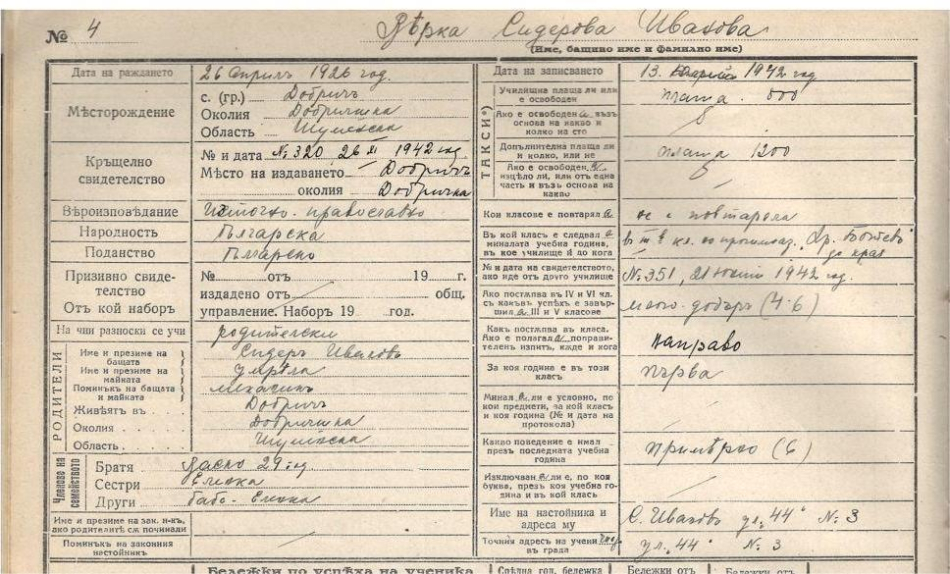 № 4 Вѣрка Сидерова Ивахова
(Име, бащино име и фамилно име)
Дата на раждането 26 Априлъ 1926 год.
Мѣсторождение
с. (гр.) Добричъ
Околия Добричка
Область Шуменска
Кръщелно свидетелство
№ и дата № 320 26 XI 1942 год.
Място на издаването Добричъ
околия Добричка
Вѣроизповѣдание Източно-православно
Народность Българска
Поданство Българско
Призивно свидетелство
Отъ кой наборъ
№ отъ 19 г.
издадено отъ общ.
управление. Наборъ 19 год.
На чии разноски се учи родителски
РОДИТЕЛИ
Име и презиме на бащата Сидеръ Иваховъ
Име и презиме на майката умрѣла
Поминъкъ на бащата и майката
Живѣятъ въ Добричъ
Околия Добричка
Область Шуменска
Членове на семейството
Братя 29 год.
Сестри Еленка
Други баба Еленка
Име и презиме на зак. н-къ, ако родителитѣ сѫ починали
Поминъкъ на законния настойникъ
Дата на записването 13. 1942 год
ТАКСИ*)
Училищна плаща ли или е освободенъ плаща 600
Ако е освободена възъ основа на какво и колко на сто
Допълнителна плаща ли и колко, или не плаща 1200
Ако е освободенъ, изцѣло ли, или отъ една часть и възъ основа на какво
Кои класове е повтарялъ не е повтаряла
Въ кой класъ е следвалъ миналата учебна година, въ кое училище и до кога въ III в кл. на прогимназ. „Хр. Ботевъ“ до край
№ и дата на свидетелството, ако иде отъ друго училище № 351, 21 Юний 1942 год.
Ако постѫпва въ IV и VI кл. съ какъвъ успѣхъ е завършилъ III и V класове много добъръ (4·6)
Какъ постѫпва въ класа. Ако е полагалъ поправителенъ изпитъ, кѫде и кога направо
За коя година е въ този класъ първа
Миналъ ли е условно, по кои предмети, за кой класъ и коя година (№ и дата на протокола)
Какво поведение е ималъ презъ последната учебна година примѣрно (6)
Изключванъ ли е, по коя буква, презъ коя учебна година и въ кой класъ
Име на настойника и адреса му С. Иваховъ ул. „44“ № 3
Точния адресъ на учени въ града ул. „44“ № 3
Бележки по успѣха на ученика
Срѣдна год. бележка
Бележки отъ
Бележки отъ